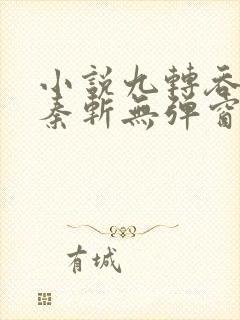 小說九轉吞
秦斬無彈窗
有城